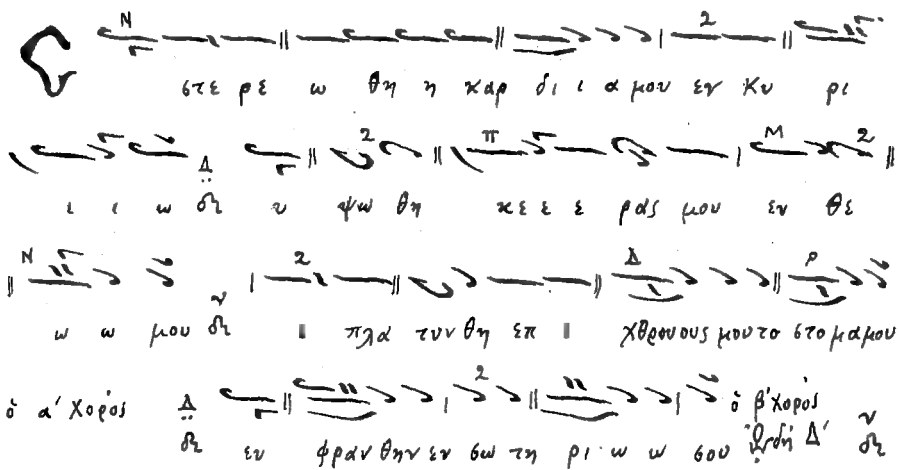 στε ρε ω θη η καρ δι ι α μου εν Κυ ρι
ι ι ω υ ψω θη κε ε ε ρας μου εν θε
ω ω μου πλα τυν θη επ χθρους μου το στομα μου
ὁ α' χορός ευ φραν θην εν σω τη ρι ω ω σου ὁ β' χορός
Ὠδή Δ'